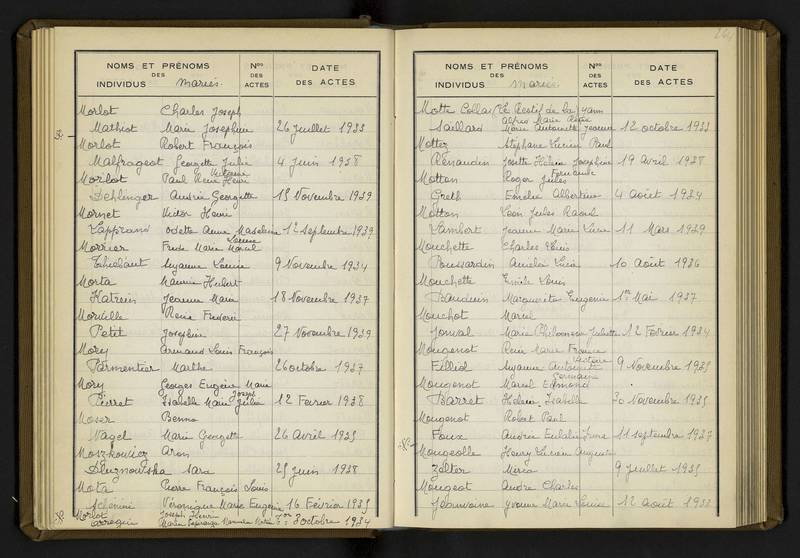 NOMS ET PRÉNOMS
DES
INDIVIDUS mariés
Nos
DES
ACTES
DATE
DES ACTES
Morlot Charles Joseph
Mathiot Marie Joséphine 26 juillet 1933
Morlot Robert François
Malfrageot Georgette Julie 4 juin 1938
Morlot Paul René Henri
Dehlinger Andrée Georgette 15 Novembre 1939
Mornet Victor Henri
Lapprand Odette Anne Madeleine 12 septembre 1939
Morrier Marie Marcel
Suzanne Louise 9 Novembre 1934
Morta Maurice Hubert
Katrein Jeanne Marie 18 Novembre 1937
Morville René Frédéric
Petit Joséphine 27 Novembre 1939
Mory Armand Louis François
Parmentier Marthe 26 octobre 1937
Mory Georges Eugène Marie
Joseph
Pierret Isabelle Marie Julie 12 Février 1938
Moser Benno
Nagel Marie Georgette 26 Avril 1935
Moszkowicz Aron
Sara 25 juin 1938
Mota Pierre François Louis
Véronique Marie Eugénie 16 Février 1935
Morlot Joseph Henri
Marie 3 octobre 1934
NOMS ET PRÉNOMS
DES
INDIVIDUS mariés
Nos
DES
ACTES
DATE
DES ACTES
Motte Collas (Le Restif de la) Yann
Alfred Marie
Saillard Marie Antoinette Jeanne 12 octobre 1933
Mottez Stéphane Lucien Paul
Renaudin Josette Hélène Joséphine 19 Avril 1938
Motton Roger Jules
Greth Emélie Albertine 4 août 1934
Motton Léon Jules Raoul
Lambert Jeanne Marie Lucie 11 Mars 1939
Mouchette Charles Louis
Poussardin Amélie Lucie 10 août 1936
Mouchette Emile Louis
Bauduin Marguerite Eugénie 1er Mai 1937
Mouchot Marcel
Jonval Marie Philomène Juliette 12 Février 1934
Mougenot René Marie
Filliol Suzanne Antoinette 9 Novembre 1935
Germaine
Mougenot Marcel Edmond
Barret Hélène Isabelle 30 Novembre 1935
Mougenot Robert Paul
Faux Andrée Eulalie Irma 11 septembre 1937
Mougeolle Henry Lucien Auguste
Zelter 9 juillet 1935
Mougeot André Charles
Jeanvoine Yvonne Marie Louise 12 août 1933